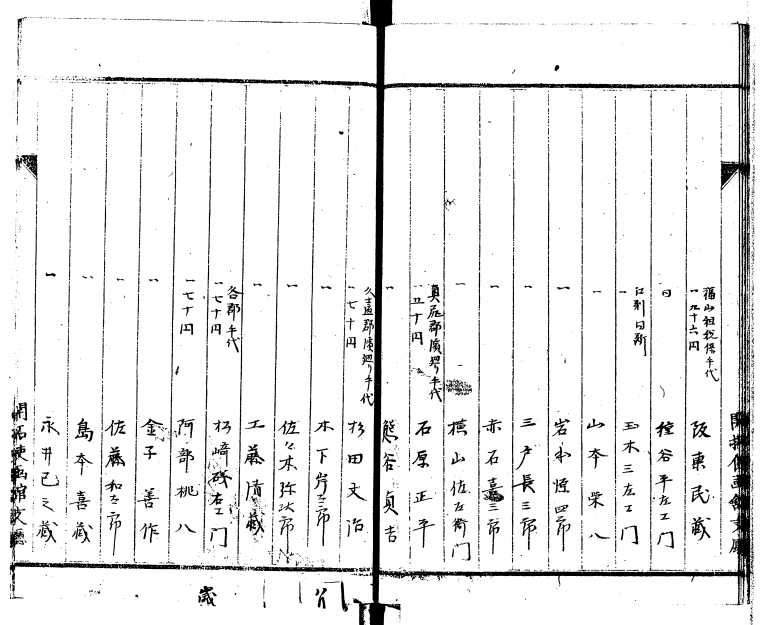 福山租税係手代
一九十六円 阪東民蔵
同 種谷平左エ門
江刺同断
一 玉木三左エ門
一 山本栄八
一 岩木恒四郎
一 三戸長三郎
一 赤石嘉三郎
一 横山佐左衛門
奥尻郡濱廻り手代
一五十円 石原正平
一 熊谷貞吉
久遠郡濱廻り手代
一七十円 杉田文治
一 木下岸三郎
一 佐々木弥次郎
一 工藤清蔵
各郡手代
一七十円 杉崎 右エ門
一七十円 阿部桃八
一 金子善作
一 佐藤和三郎
一 島本喜蔵
一 永井己之蔵
開拓使函館支庁